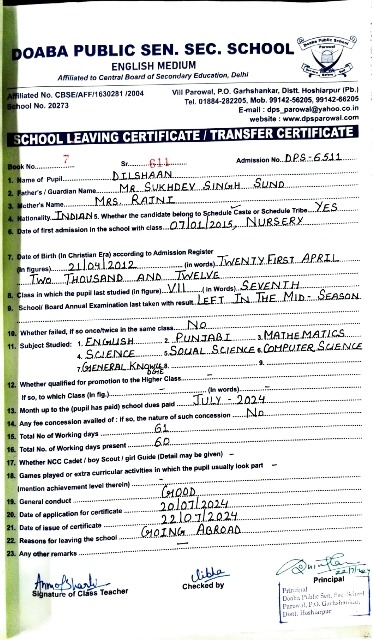 DOABA PUBLIC SEN. SEC. SCHOOL
ENGLISH MEDIUM
Affiliated to Central Board of Secondary Education, Delhi
Affiliated No. CBSE/AFF/1630281 /2004
School No. 20273
Vill Parowal, P.O. Garhshankar, Distt. Hoshiarpur (Pb.)
Tel. 01884-282205, Mob. 99142-56205, 99142-66205
E-mail : dps_parowal@yahoo.co.in
website : www.dpsparowal.com
SCHOOL LEAVING CERTIFICATE / TRANSFER CERTIFICATE
Book No. 7 Sr. 611 Admission No. DPS-6511
1. Name of Pupil DILSHAAN
2. Father's / Guardian Name MR. SUKHDEV SINGH SUND
3. Mother's Name MRS. RAJNI
4. Nationality INDIAN 5. Whether the candidate belong to Schedule Caste or Schedule Tribe YES
6. Date of first admission in the school with class 07/01/2015, NURSERY
7. Date of Birth (In Christian Era) according to Admission Register
(In figures) 21/04/2012 (in words) TWENTY FIRST APRIL
TWO THOUSAND AND TWELVE
8. Class in which the pupil last studied (in figure) VII (in Words) SEVENTH
9. School/ Board Annual Examination last taken with result LEFT IN THE MID-SEASON
10. Whether failed, if so once/twice in the same class NO
11. Subject Studied: 1. ENGLISH 2. PUNJABI 3. MATHEMATICS
4. SCIENCE 5. SOCIAL SCIENCE 6. COMPUTER SCIENCE
7. GENERAL KNOWLEDGE 8. 9.
12. Whether qualified for promotion to the Higher Class –
If so, to which Class (In fig.) – (In words) –
13. Month up to the (pupil has paid) school dues paid JULY - 2024
14. Any fee concession availed of : if so, the nature of such concession NO
15. Total No of Working days 61
16. Total No. of Working days present 60
17. Whether NCC Cadet / boy Scout / girl Guide (Detail may be given) –
18. Games played or extra curricular activities in which the pupil usually look part –
(mention achievement level therein) –
19. General conduct GOOD
20. Date of application for certificate 20/07/2024
21. Date of issue of certificate 22/07/2024
22. Reasons for leaving the school GOING ABROAD
23. Any other remarks –
Signature of Class Teacher
Checked by
Principal
Principal
Doaba Public Sen. Sec. School
Parowal, P.O. Garhshankar,
Distt. Hoshiarpur